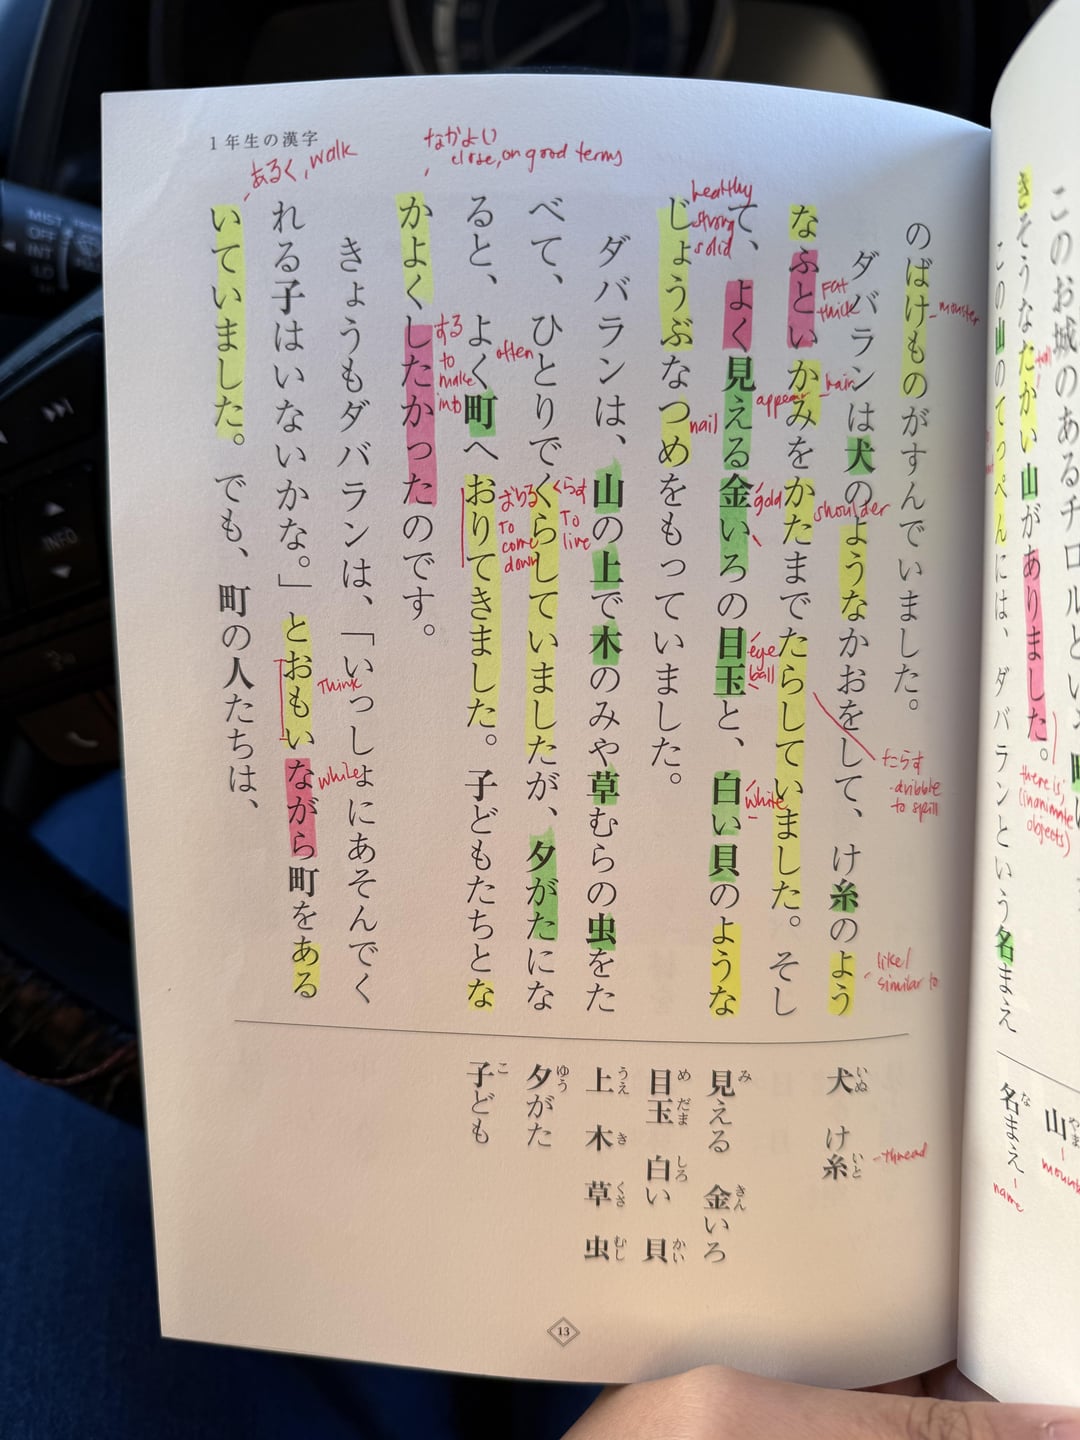 このお城のあるチロルとい
きそうなたかい山がありました。
この山のてっぺんには、ダバランという名まえ
there is,
(inanimate
objects)
山
やま
名まえ
な
name
1年生の漢字
のばけものがすんでいました。
monster
ダバランは犬のようなかおをして、け糸のよう
like/
similar to
なふといかみをかたまでたらしていました。そし
Fat
thick
hair
shoulder
たらす
-dribble
to spill
て、よく見える金いろの目玉と、白い貝のような
appear
gold
eye
ball
white
じょうぶなつめをもっていました。
healthy
strong
solid
nail
ダバランは、山の上で木のみや草むらの虫をた
べて、ひとりでくらしていましたが、夕がたにな
くらす
To
live
ると、よく町へおりてきました。子どもたちとな
often
おりる
to
come
down
かよくしたかったのです。
なかよい
close, on good terms
する
to
make
into
きょうもダバランは、「いっしょにあそんでく
れる子はいないかな。」とおもいながら町をある
Think
while
いていました。でも、町の人たちは、
あるく, walk
犬
いぬ
け糸
いと
-thread
見える
み
金いろ
きん
目玉
めだま
白い
しろ
貝
かい
上
うえ
木
き
草
くさ
虫
むし
夕がた
ゆう
子ども
こ
13
MIST
OFF
INT
LO
INFO